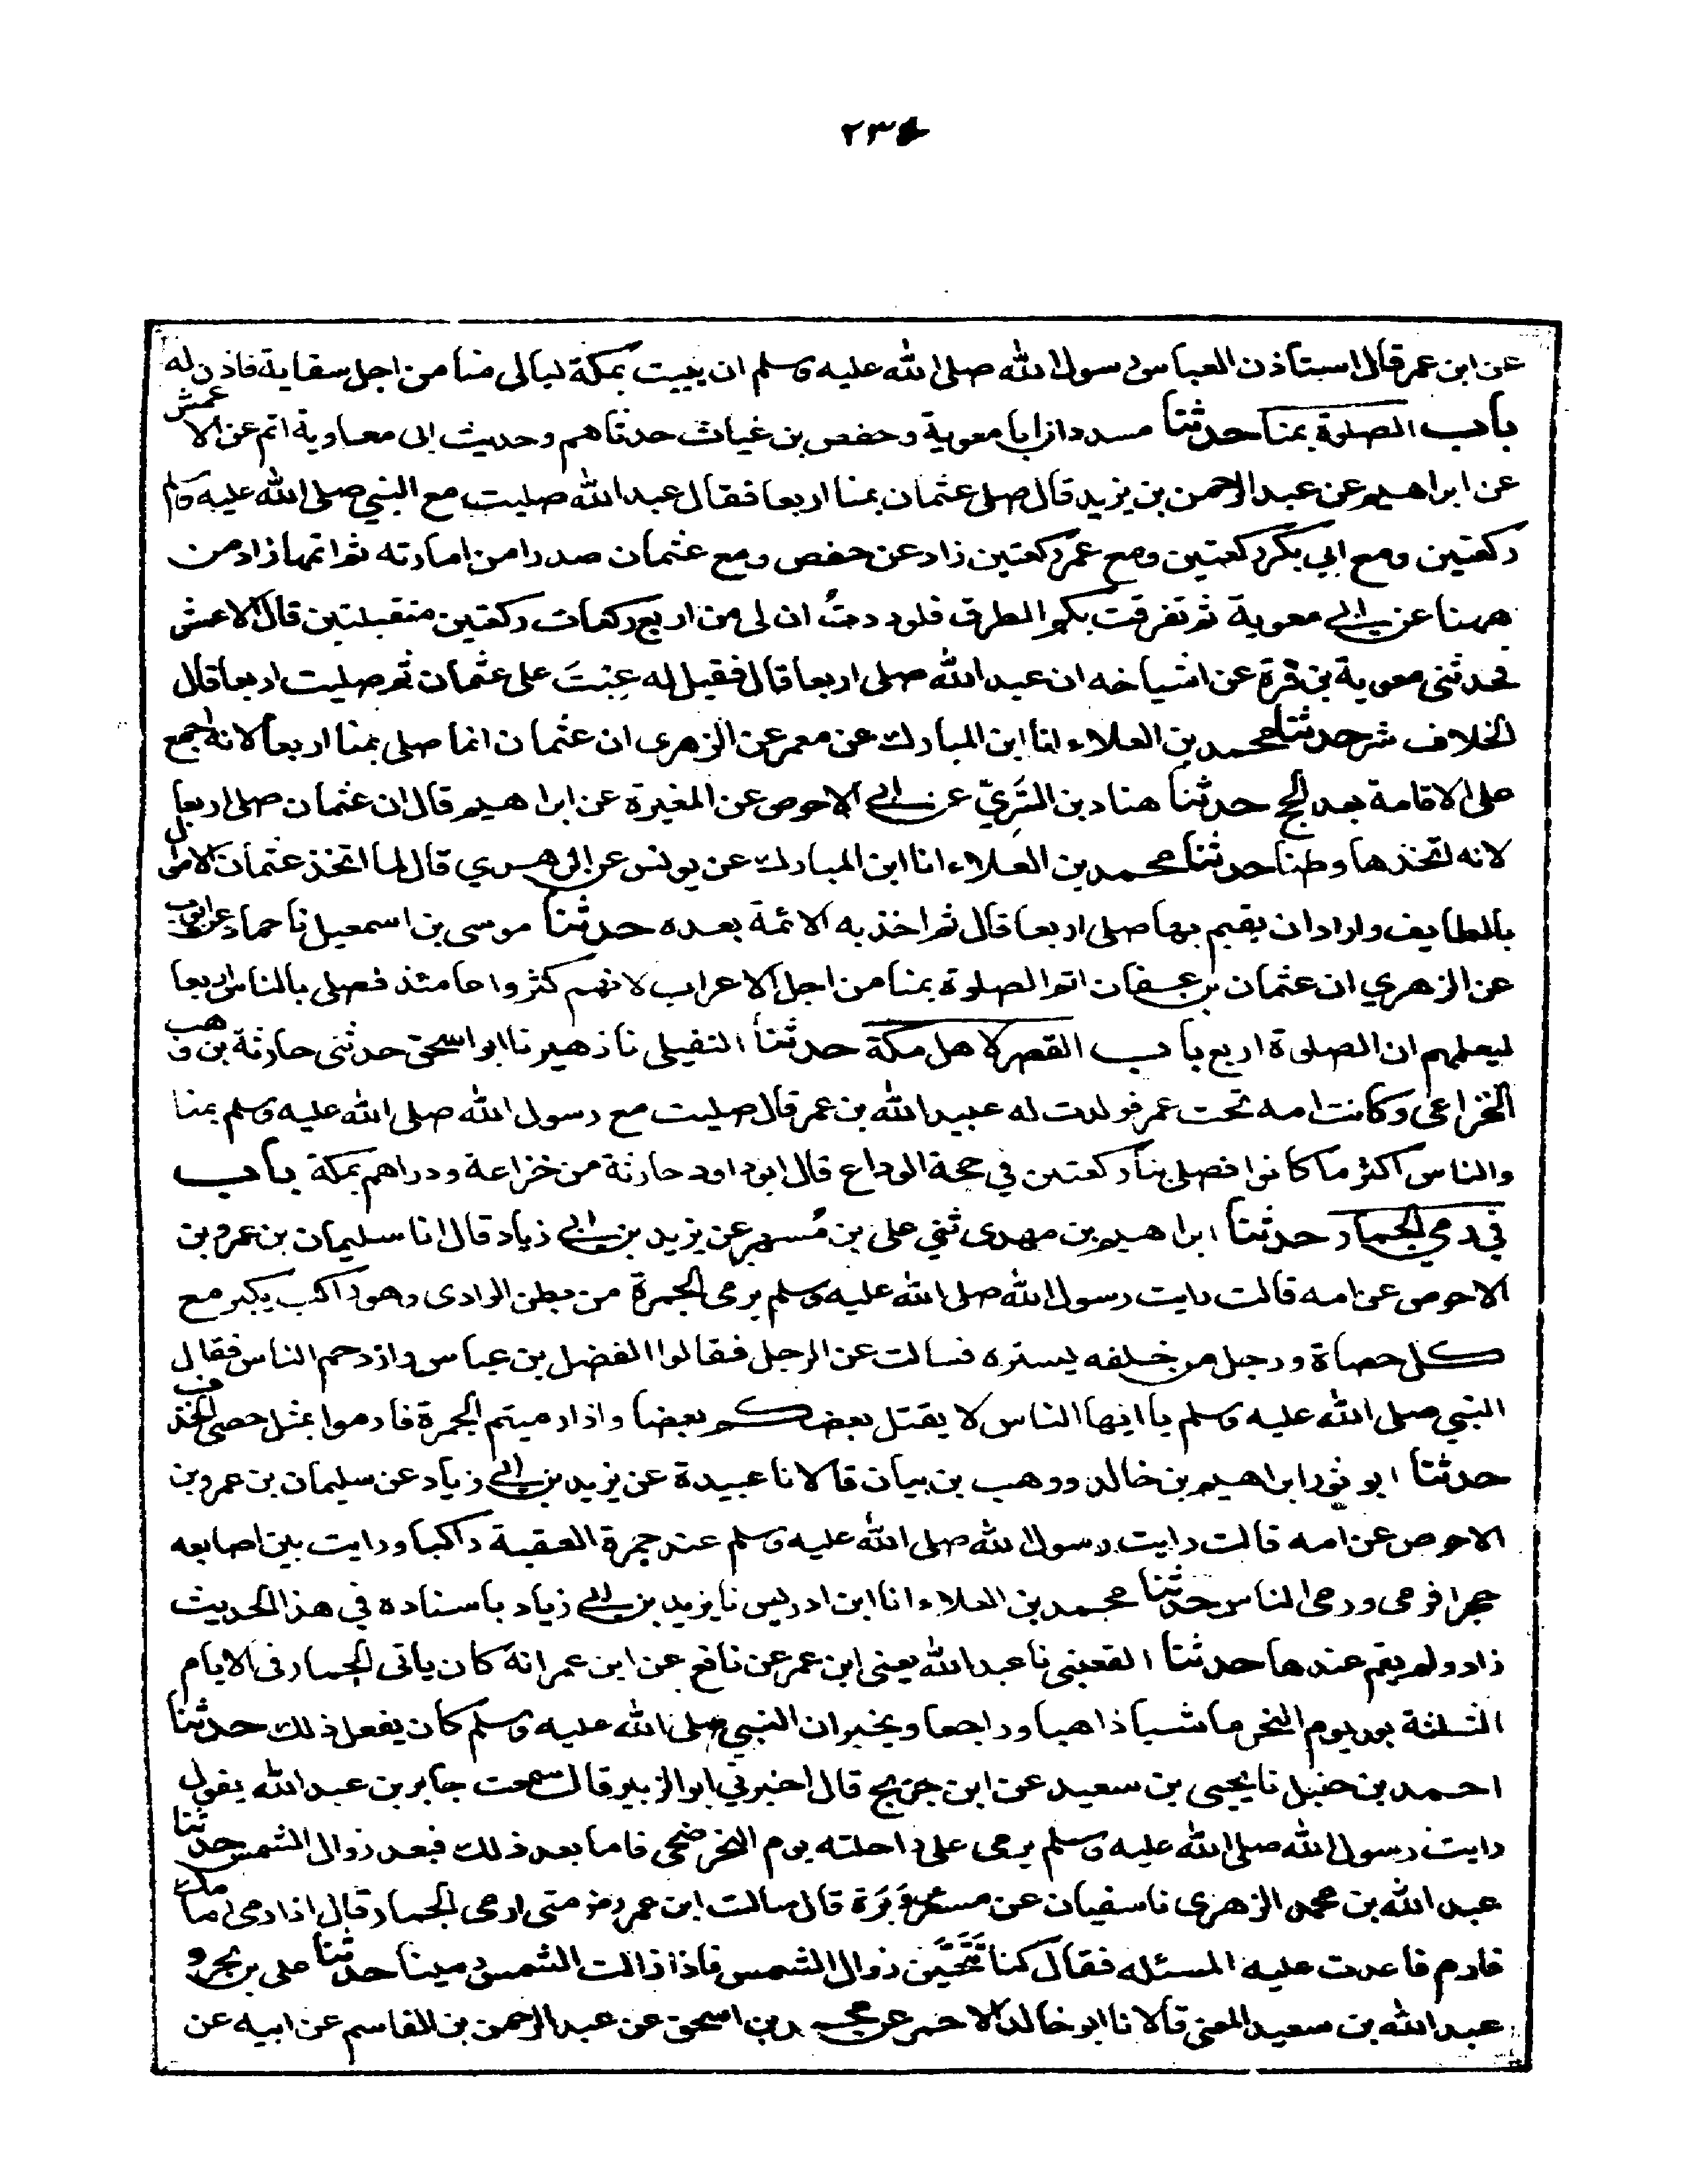 ٢٣٤
عن ابن عمر قال استاذن العباس رسول الله صلى الله عليه وسلم ان يبيت بمكة ليالى منا من اجل سقاية فاذن له
باب الصلوة بمنا حدثنا مسدد ان ابا معوية وحفص بن غياث حدثاهم وحديث ابى معاوية اتم عن الاعمش
عن ابراهيم عن عبد الرحمن بن يزيد قال صلى عثمان بمنا اربعا فقال عبد الله صليت مع النبي صلى الله عليه وسلم
ركعتين ومع ابي بكر ركعتين ومع عمر ركعتين زاد عن حفص ومع عثمان صدرا من امارته ثم اتمها زاد من
ههنا عن ابي معوية ثم تفرقت بكم الطرق فلوددتُ ان لى من اربع ركعات ركعتين متقبلتين قال الاعمش
فحدثنى معوية بن قرة عن اشياخه ان عبد الله صلى اربعا قال فقيل له عِبْتَ على عثمان ثم صليت اربعا قال
الخلاف شر حدثنا محمد بن العلاء انا ابن المبارك عن معمر عن الزهرى ان عثمان انما صلى بمنا اربعا لانه اجمع
على الاقامة بعد الحج حدثنا هناد بن السَّرِيّ عن ابي الاحوص عن المغيرة عن ابراهيم قال ان عثمان صلى اربعا
لانه اتخذها وطنا حدثنا محمد بن العلاء انا ابن المبارك عن يونس عن الزهري قال لما اتخذ عثمان الاموال
بالطايف واراد ان يقيم بها صلى اربعا قال ثم اخذ به الائمة بعده حدثنا موسى بن اسمعيل نا حماد عن ايوب
عن الزهري ان عثمان بن عفان اتم الصلوة بمنا من اجل الاعراب لانهم كثروا عامئذ فصلى بالناس اربعا
ليعلمهم ان الصلوة اربع باب القصر لاهل مكة حدثنا النفيلى نا زهير نا ابو اسحق حدثنى حارثة بن وهب
الخزاعى وكانت امه تحت عمر فولدت له عبيد الله بن عمر قال صليت مع رسول الله صلى الله عليه وسلم بمنا
والناس اكثر ما كانوا فصلى بنا ركعتين في حجة الوداع قال ابو داود حارثة من خزاعة ودراهم بمكة باب
في رمي الجمار حدثنا ابراهيم بن مهدى ثني على بن مُسهر عن يزيد بن ابي زياد قال انا سليمان بن عمرو بن
الاحوص عن امه قالت رايت رسول الله صلى الله عليه وسلم يرمى الجمرة من بطن الوادى وهو راكب يكبر مع
كل حصاة ورجل من خلفه يستره فسالت عن الرجل فقالوا الفضل بن عباس وازدحم الناس فقال
النبي صلى الله عليه وسلم يا ايها الناس لا يقتل بعضكم بعضا واذا رميتم الجمرة فارموا بمثل حصى الخذف
حدثنا ابو ثور ابراهيم بن خالد ووهب بن بيان قالا نا عبيدة عن يزيد بن ابي زياد عن سليمان بن عمرو بن
الاحوص عن امه قالت رايت رسول الله صلى الله عليه وسلم عند جمرة العقبة راكبا ورايت بين اصابعه
حجرا فرمى ورمى الناس حدثنا محمد بن العلاء انا ابن ادريس نا يزيد بن ابي زياد باسناده في هذا الحديث
زاد ولم يقم عندها حدثنا القعنبى نا عبد الله يعنى ابن عمر عن نافع عن ابن عمر انه كان ياتى الجمار فى الايام
الثلثة بعد يوم النحر ماشيا ذاهبا وراجعا ويخبر ان النبي صلى الله عليه وسلم كان يفعل ذلك حدثنا
احمد بن حنبل نا يحيى بن سعيد عن ابن جريج قال اخبرني ابو الزبير قال سمعت جابر بن عبد الله يقول
رايت رسول الله صلى الله عليه وسلم يرمى على راحلته يوم النحر ضحى فاما بعد ذلك فبعد زوال الشمس حدثنا
عبد الله بن محمد الزهرى نا سفيان عن مسعر عن وَبَرَة قال سالت ابن عمر رض متى ارمى الجمار قال اذا رمى امامك
فارم فاعدت عليه المسئله فقال كنا نَتَحَيَّن زوال الشمس فاذا زالت الشمس رمينا حدثنا على بن بحر و
عبد الله بن سعيد المعنى قالا نا ابو خالد الاحمر عن محمد بن اسحق عن عبد الرحمن بن القاسم عن ابيه عن